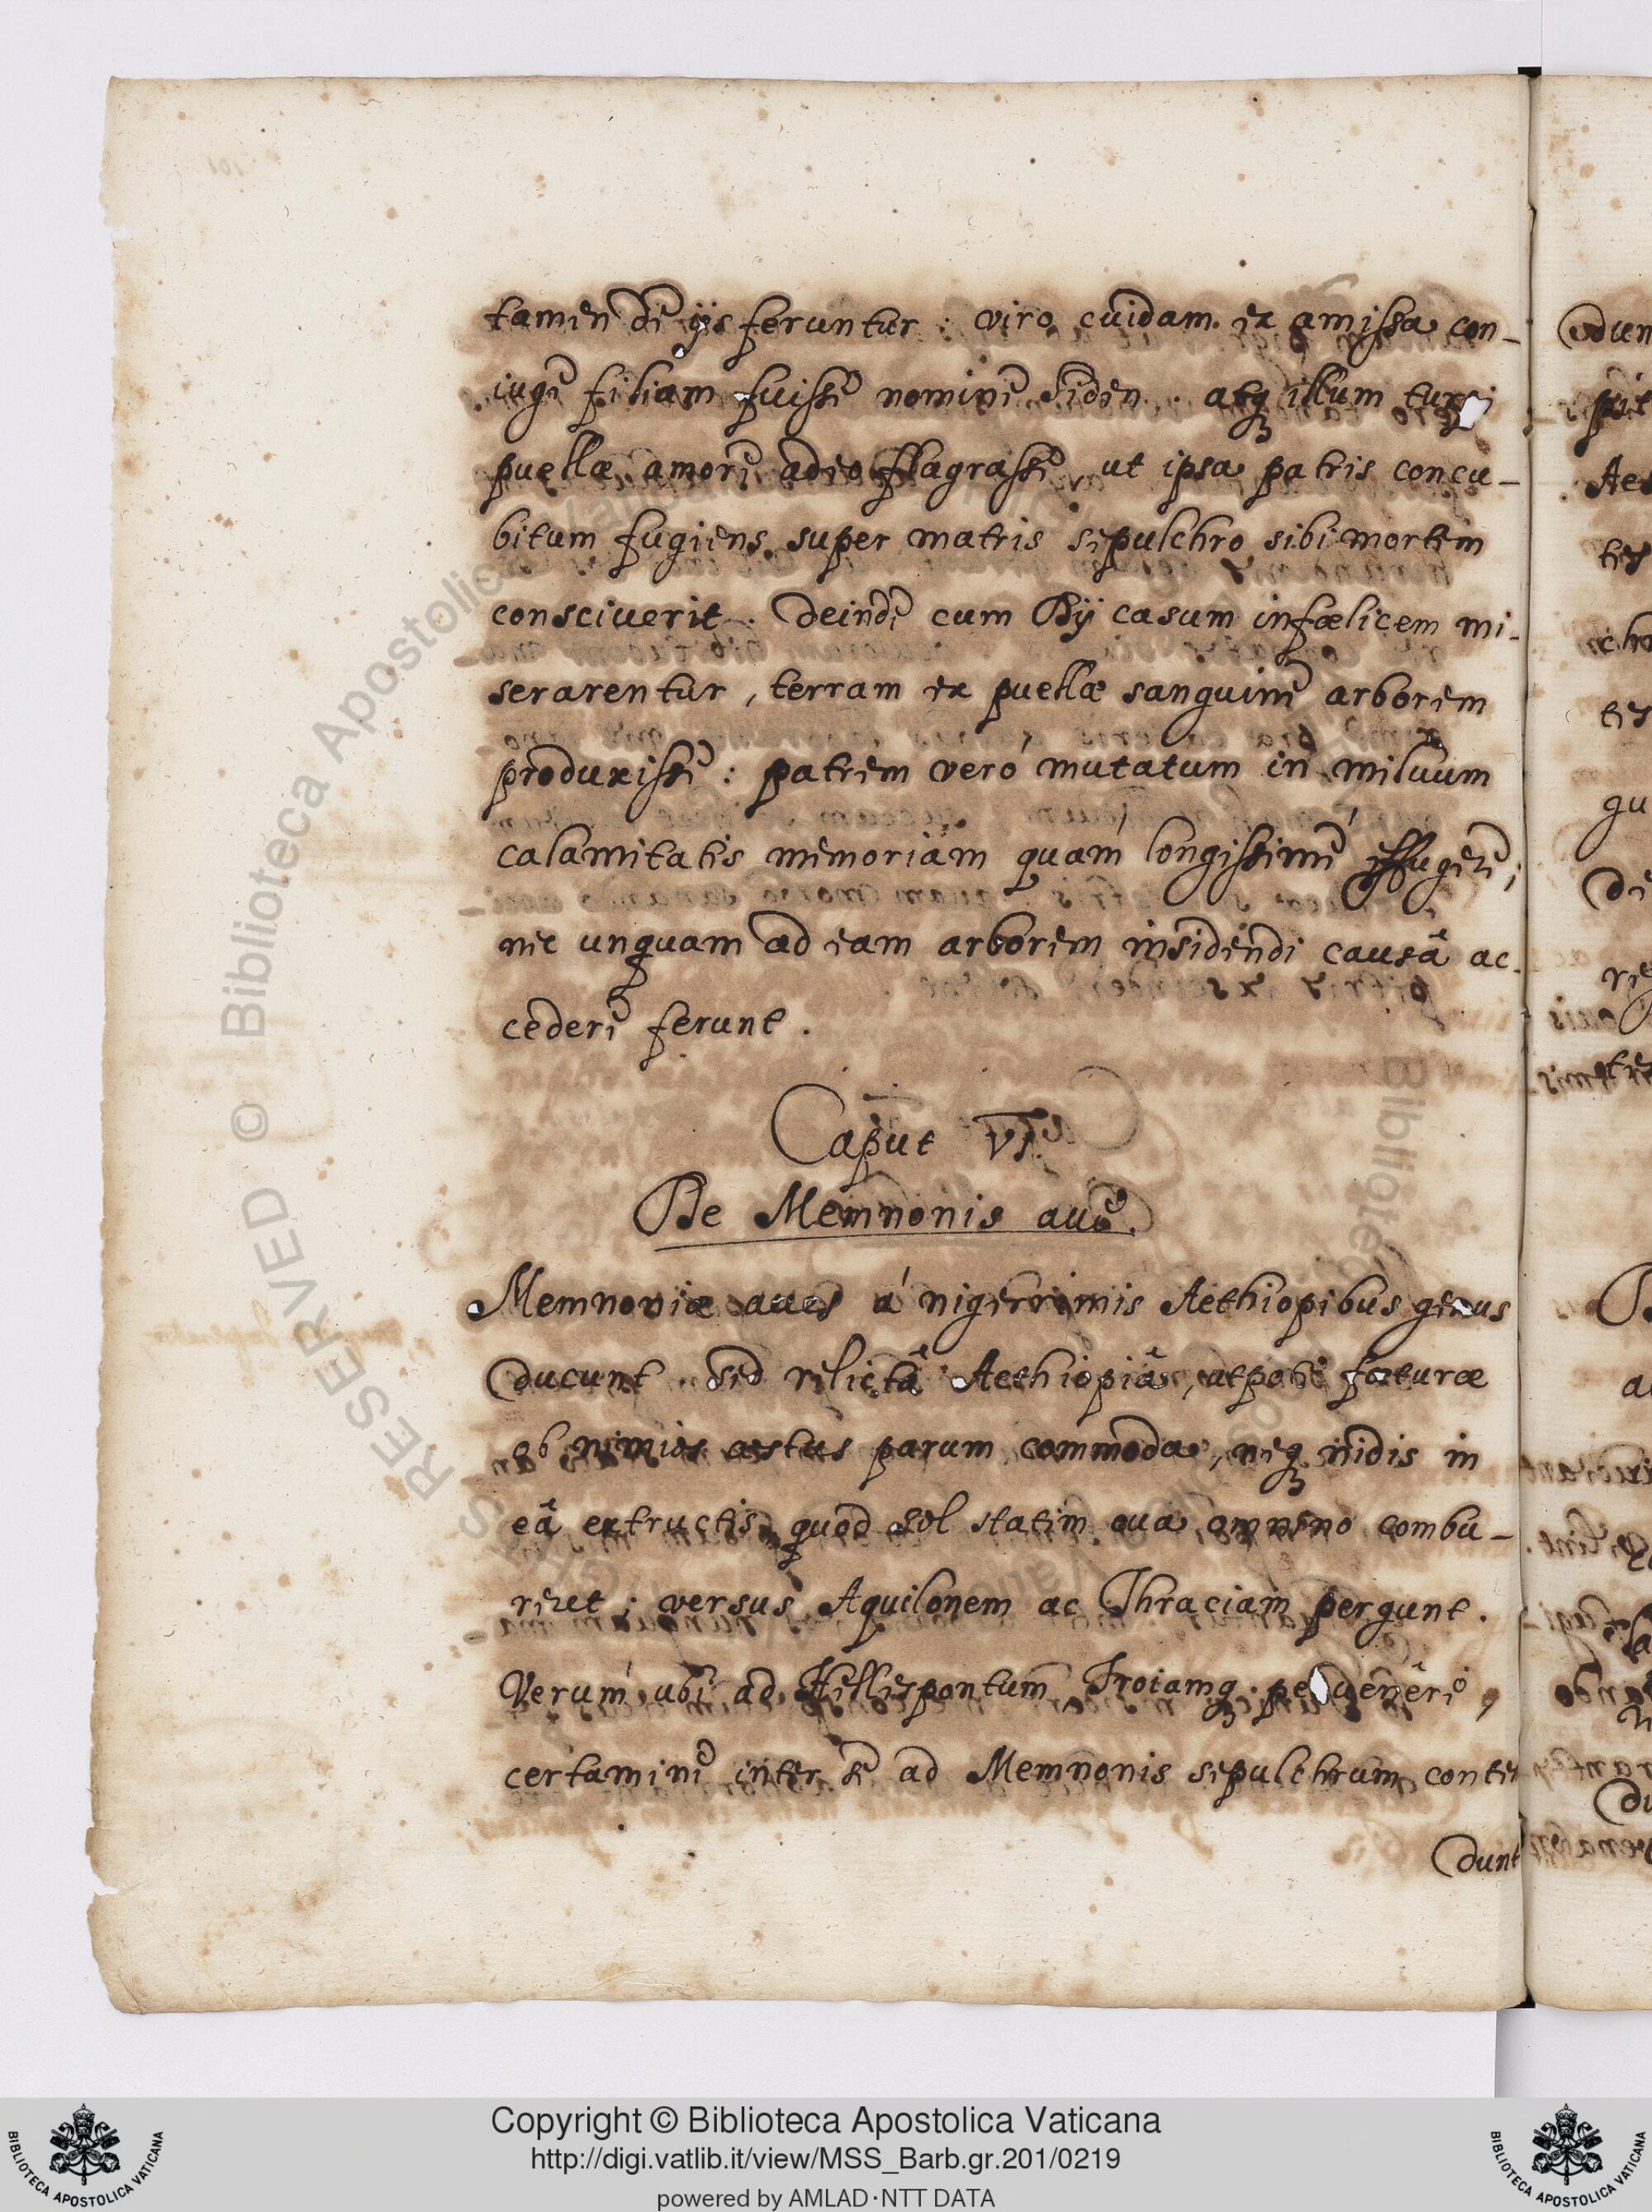 tamen de ijs feruntur: viro cuidam ex amissa con-
iuge filiam fuisse nomine Siden. atq illum turpi
puellæ amore adeo flagrasse, ut ipsa patris concu-
bitum fugiens super matris sepulchro sibi mortem
consciverit. Deinde cum Dij casum infœlicem mi-
serarentur, terram ex puellæ sanguine arborem
produxisse: patrem verò mutatum in miluum
calamitatis memoriam quàm longissimè effugere;
nec unquam ad eam arborem insidendi causâ ac-
cedere ferunt.
Caput VI.
De Memnonis aue.
Memnoniæ aues à nigerrimis Aethiopibus genus
ducunt. sed relictâ Aethiopiâ, utpote fœturæ
ob nimios æstus parum commoda, neq nidis in
eâ extructis, quod sol statim oua omnino combu-
reret; versus Aquilonem ac Thraciam pergunt.
Verùm ubi ad Hellespontum Troiamq peruenêre,
certamine inter se ad Memnonis sepulchrum conten
dunt
RESERVED © Biblioteca Apostolica
Copyright © Biblioteca Apostolica Vaticana
http://digi.vatlib.it/view/MSS_Barb.gr.201/0219
powered by AMLAD·NTT DATA
BIBLIOTECA APOSTOLICA VATICANA
BIBLIOTECA APOSTOLICA VATICANA